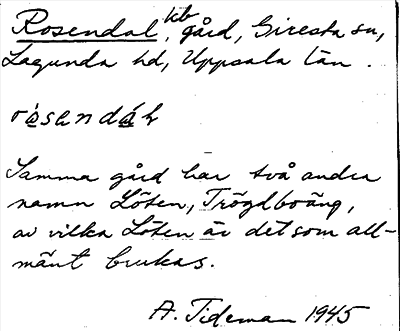 Rosendal, hb gård, Giresta sn,
Lagunda hd, Uppsala län.
rósendáƚ
Samma gård har två andra
namn Löten, Trögdboäng,
av vilka Löten är det som all-
mänt brukas.
A. Tideman 1945